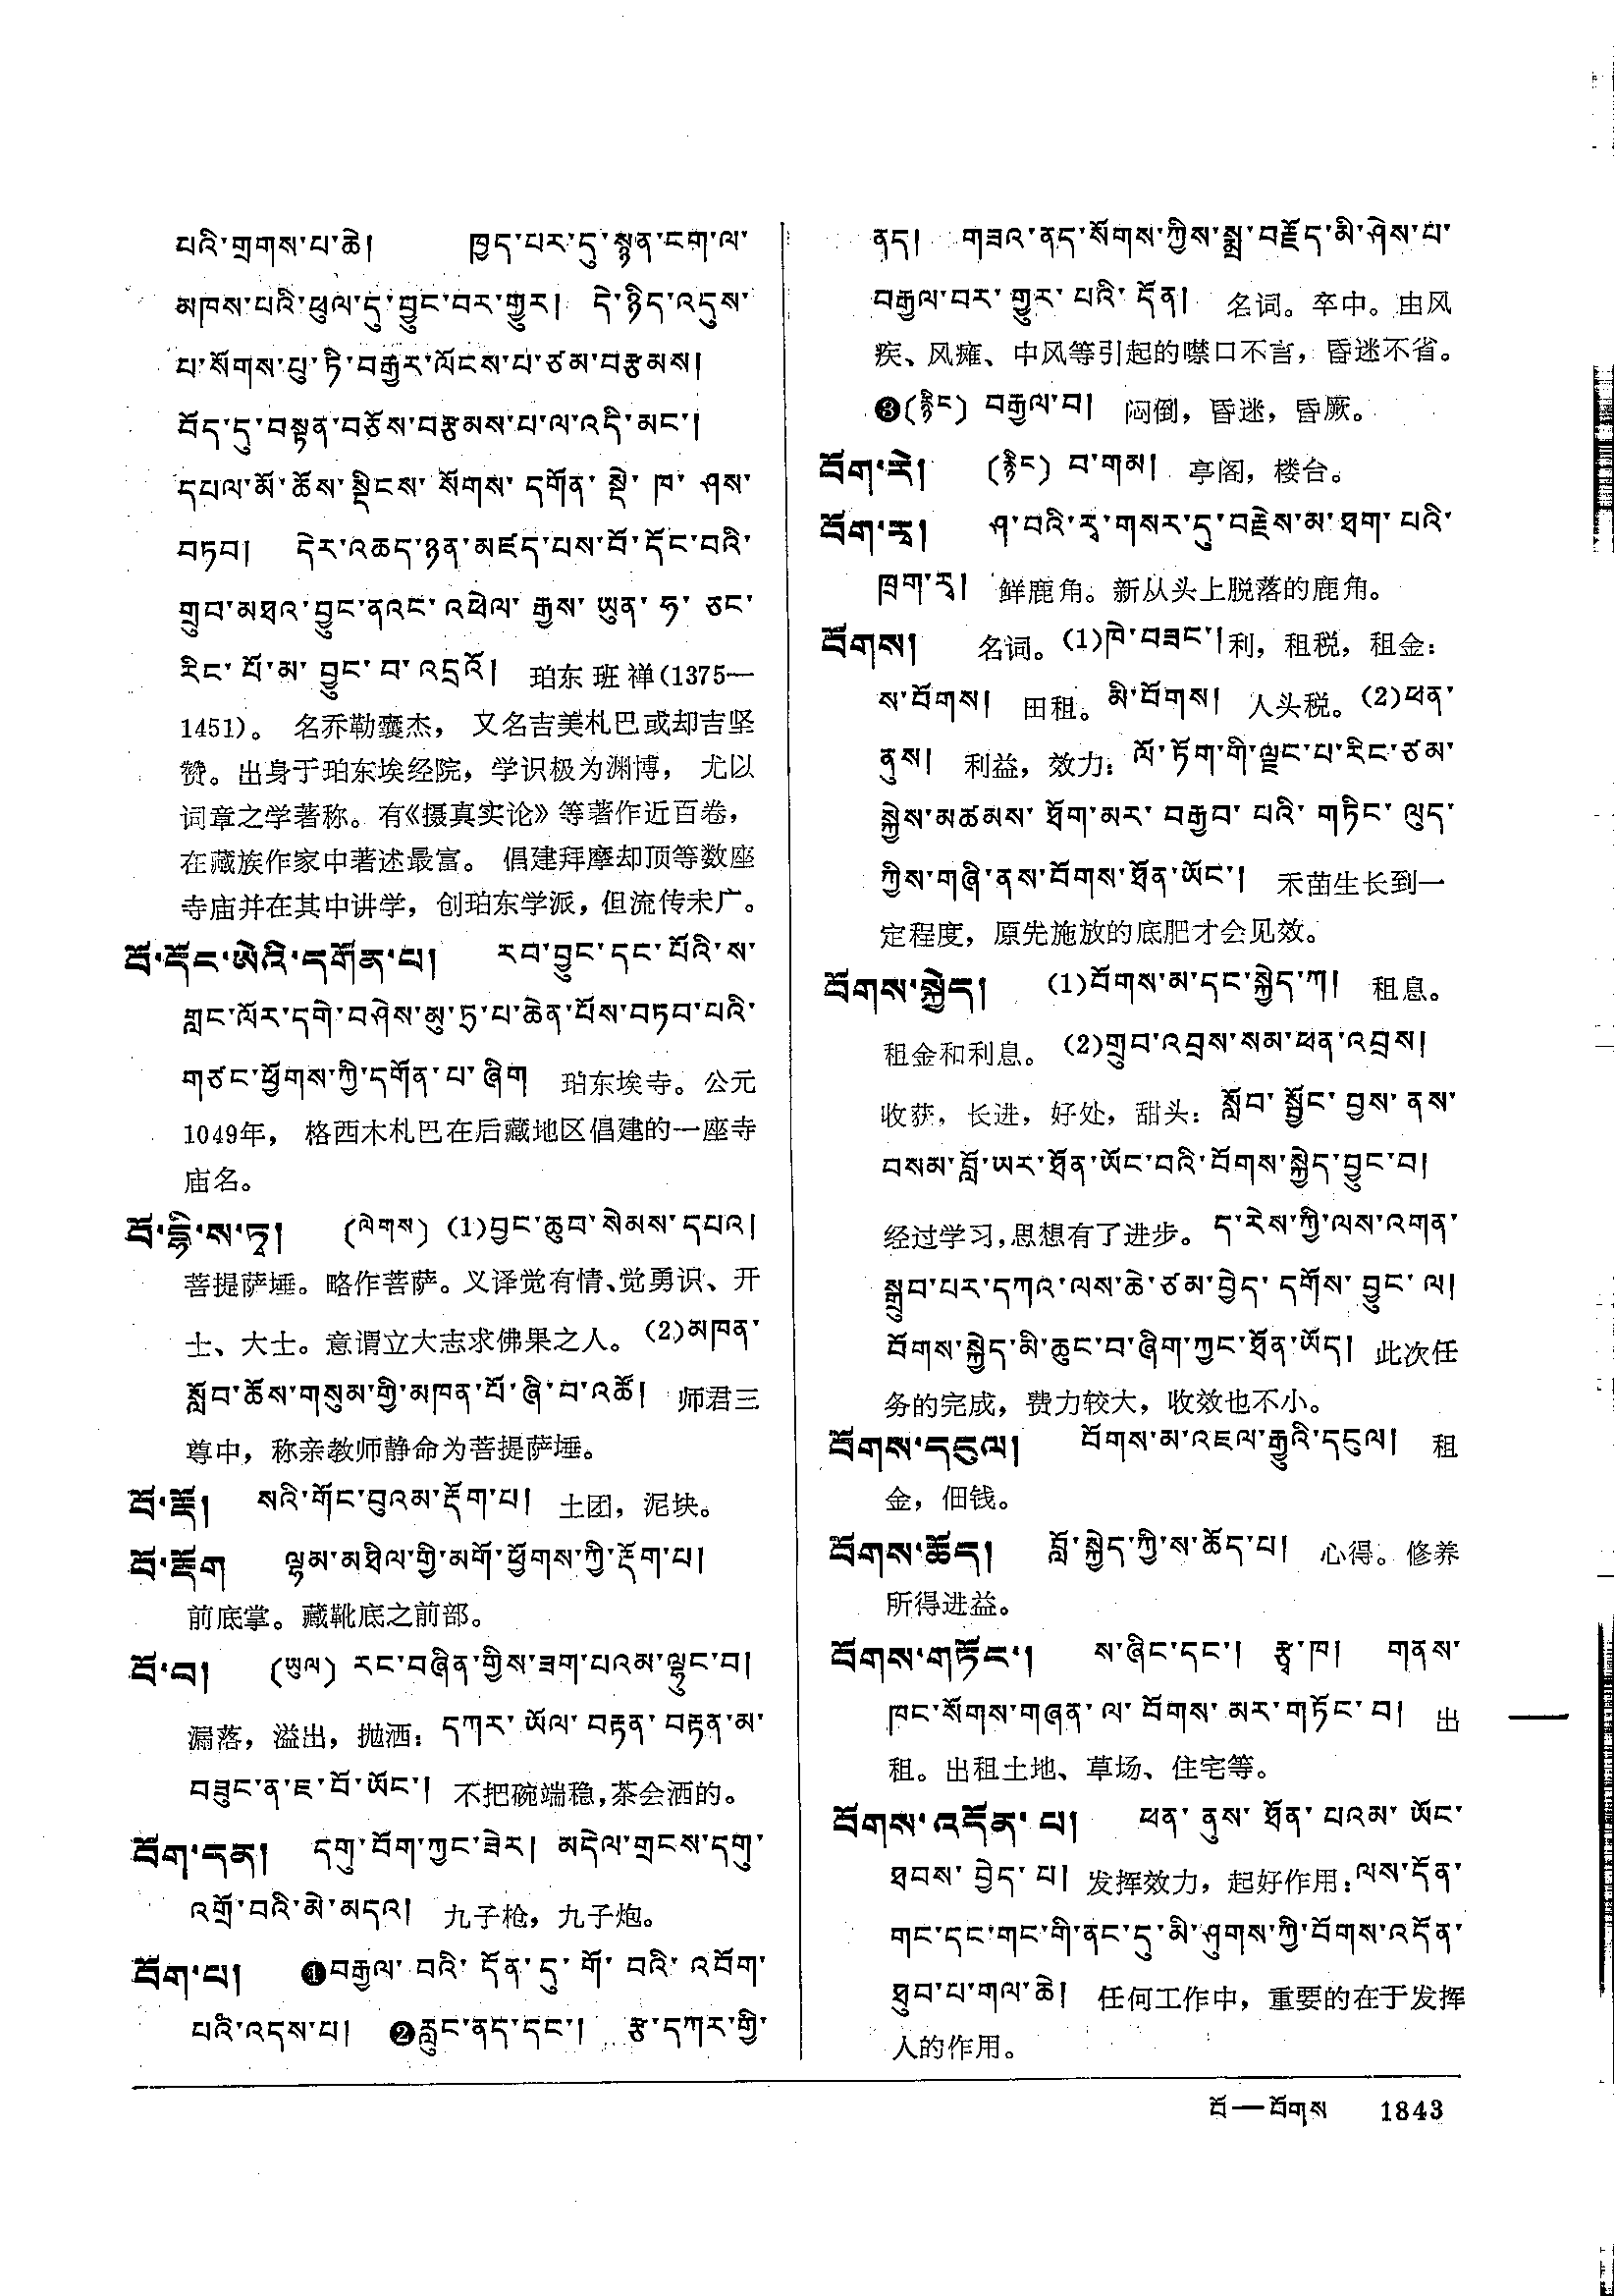 པའི་གྲགས་པ་ཆེ། ཁྱད་པར་དུ་སྙན་ངག་ལ་
མཁས་པའི་ཕུལ་དུ་བྱུང་བར་གྱུར། དེ་ཉིད་འདུས་
པ་སོགས་པུ་ཏི་བརྒྱར་ལོངས་པ་ཙམ་བརྩམས།
བོད་དུ་བསྟན་བཅོས་བརྩམས་པ་ལ་འདི་མང་།
དཔལ་མོ་ཆོས་སྡིངས་སོགས་དགོན་སྡེ་ཁ་ཤས་
བཏབ། དེར་འཆད་ཉན་མཛད་པས་བོ་དོང་བའི་
གྲུབ་མཐའ་བྱུང་ནའང་འཕེལ་རྒྱས་ཡུན་ཧ་ཅང་
རིང་པོ་མ་བྱུང་བ་འདྲའོ། 珀东班禅(1375—
1451)。 名乔勒囊杰， 又名吉美札巴或却吉坚
赞。出身于珀东埃经院，学识极为渊博， 尤以
词章之学著称。有《摄真实论》等著作近百卷，
在藏族作家中著述最富。 倡建拜摩却顶等数座
寺庙并在其中讲学，创珀东学派，但流传未广。
བོ་དོང་ཨེའི་དགོན་པ། རབ་བྱུང་དང་པོའི་ས་
གླང་ལོར་དགེ་བཤེས་མུ་ཏྲ་པ་ཆེན་པོས་བཏབ་པའི་
གཙང་ཕྱོགས་ཀྱི་དགོན་པ་ཞིག 珀东埃寺。公元
1049年， 格西木札巴在后藏地区倡建的一座寺
庙名。
བོ་དྷི་ས་ཏྭ། (ལེགས) (1)བྱང་ཆུབ་སེམས་དཔའ།
菩提萨埵。略作菩萨。义译觉有情、觉勇识、开
士、大士。意谓立大志求佛果之人。(2)མཁན་
སློབ་ཆོས་གསུམ་གྱི་མཁན་པོ་ཞི་བ་འཚོ། 师君三
尊中，称亲教师静命为菩提萨埵。
བོ་རྡོ། སའི་གོང་བུའམ་རྡོག་པ། 土团，泥块。
བོ་རྡོག ལྷམ་མཐིལ་གྱི་མགོ་ཕྱོགས་ཀྱི་རྡོག་པ།
前底掌。藏靴底之前部。
བོ་བ། (ཡུལ) རང་བཞིན་གྱིས་ཟག་པའམ་ལྷུང་བ།
漏落，溢出，抛洒：དཀར་ཡོལ་བརྟན་བརྟན་མ་
བཟུང་ན་ཇ་བོ་ཡོང་། 不把碗端稳，茶会洒的。
བོག་དན། དགུ་བོག་ཀྱང་ཟེར། མདེལ་གྲངས་དགུ་
འགྲོ་བའི་མེ་མདའ། 九子枪，九子炮。
བོག་པ། ❶བརྒྱལ་བའི་དོན་དུ་གོ་བའི་འབོག་
པའི་འདས་པ། ❷རླུང་ནད་དང་། རྩ་དཀར་གྱི་
ནད། གཟའ་ནད་སོགས་ཀྱིས་སྨྲ་བརྗོད་མི་ཤེས་པ་
བརྒྱལ་བར་གྱུར་པའི་དོན། 名词。卒中。由风
疾、风瘫、中风等引起的噤口不言，昏迷不省。
❸(རྙིང) བརྒྱལ་བ། 闷倒，昏迷，昏厥。
བོག་རེ། (རྙིང) བ་གམ། 亭阁，楼台。
བོག་རྭ། ཤ་བའི་རྭ་གསར་དུ་བརྗེས་མ་ཐག་པའི་
ཁྲག་རྭ། 鲜鹿角。新从头上脱落的鹿角。
བོགས། 名词。(1)ཁེ་བཟང་།利，租税，租金：
ས་བོགས། 田租。མི་བོགས། 人头税。(2)ཕན་
ནུས། 利益，效力：ལོ་ཏོག་གི་ལྗང་པ་རིང་ཙམ་
སྐྱེས་མཚམས་ཐོག་མར་བརྒྱབ་པའི་གཏིང་ལུད་
ཀྱིས་གཞི་ནས་བོགས་ཐོན་ཡོང་། 禾苗生长到一
定程度，原先施放的底肥才会见效。
བོགས་སྐྱེད། (1)བོགས་མ་དང་སྐྱེད་ཀ། 租息。
租金和利息。(2)གྲུབ་འབྲས་སམ་ཕན་འབྲས།
收获，长进，好处，甜头：སློབ་སྦྱོང་བྱས་ནས་
བསམ་བློ་ཡར་ཐོན་ཡོང་བའི་བོགས་སྐྱེད་བྱུང་བ།
经过学习，思想有了进步。ད་རེས་ཀྱི་ལས་འགན་
སྒྲུབ་པར་དཀའ་ལས་ཆེ་ཙམ་བྱེད་དགོས་བྱུང་ལ།
བོགས་སྐྱེད་མི་ཆུང་བ་ཞིག་ཀྱང་ཐོན་ཡོད། 此次任
务的完成，费力较大，收效也不小。
བོགས་དངུལ། བོགས་མ་འཇལ་རྒྱུའི་དངུལ། 租
金，佃钱。
བོགས་ཚོད། བློ་སྐྱེད་ཀྱི་ས་ཚོད་པ། 心得。修养
所得进益。
བོགས་གཏོང་། ས་ཞིང་དང་། རྩྭ་ཁ། གནས་
ཁང་སོགས་གཞན་ལ་བོགས་མར་གཏོང་བ། 出
租。出租土地、草场、住宅等。
བོགས་འདོན་པ། ཕན་ནུས་ཐོན་པའམ་ཡོང་
ཐབས་བྱེད་པ། 发挥效力，起好作用：ལས་དོན་
གང་དང་གང་གི་ནང་དུ་མི་ཤུགས་ཀྱི་བོགས་འདོན་
ཐུབ་པ་གལ་ཆེ། 任何工作中，重要的在于发挥
人的作用。
བོ—བོགས 1843